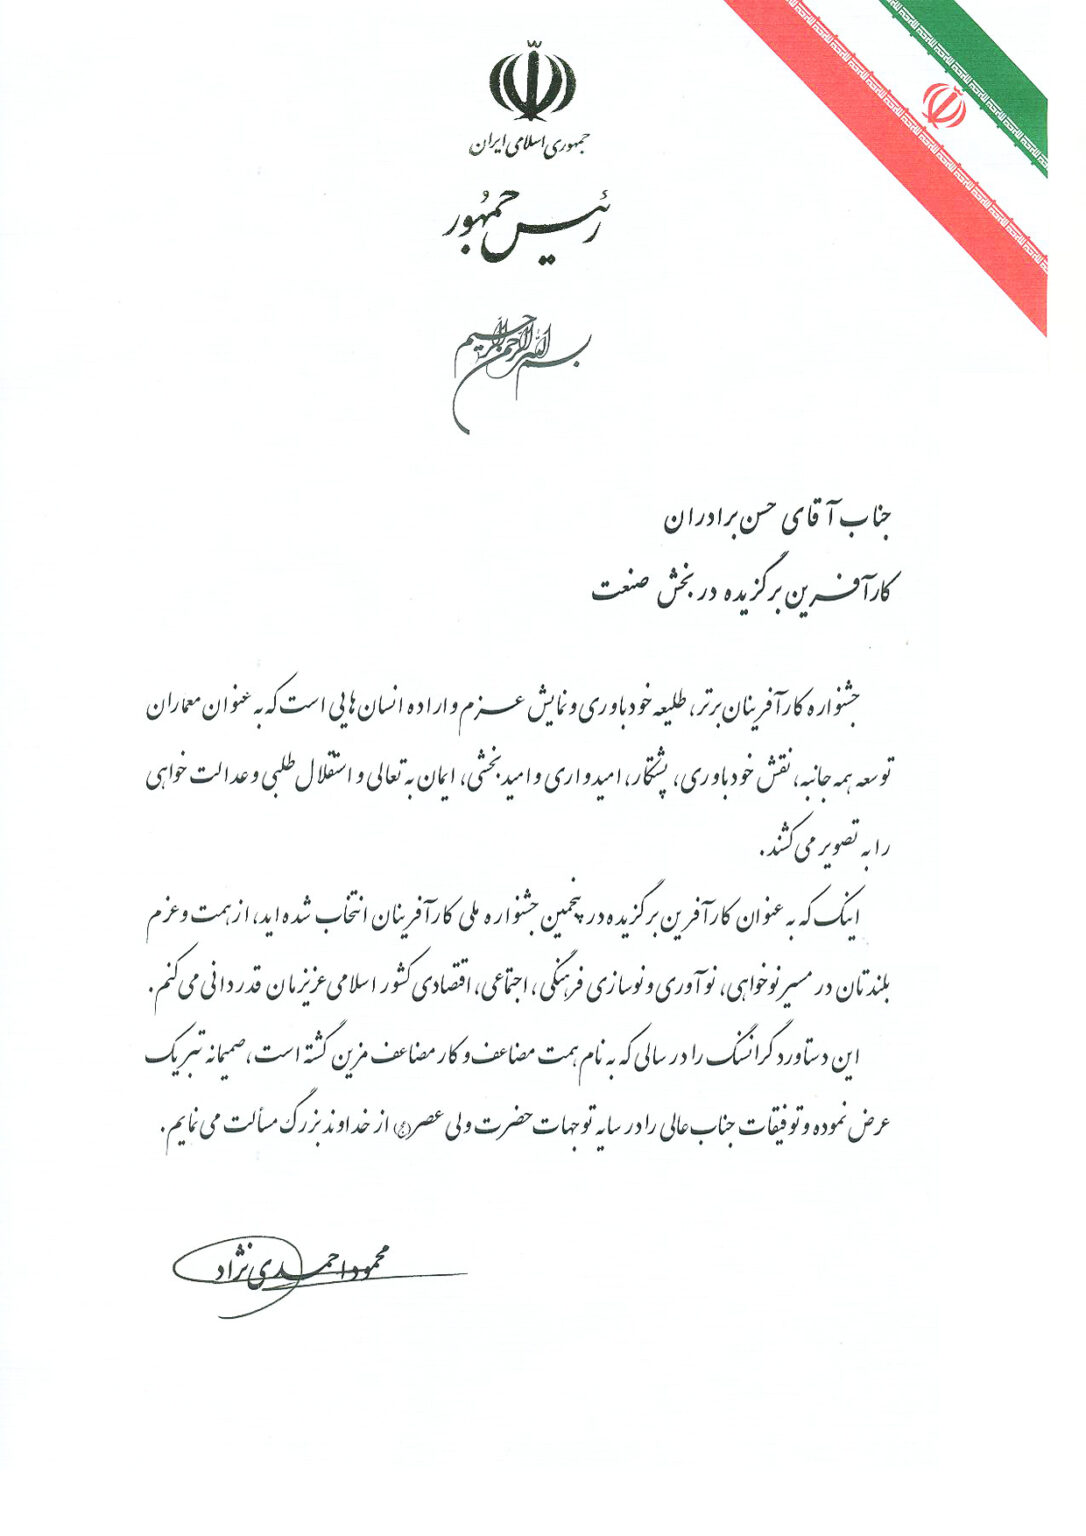 جمهوری اسلامی ایران
رئیس جمهور
بسم الله الرحمن الرحیم
جناب آقای حسن برادران
کارآفرین برگزیده در بخش صنعت
جشنواره کارآفرینان برتر، طلیعه خودباوری و نمایش عزم و اراده انسان هایی است که به عنوان معماران
توسعه همه جانبه، نقش خودباوری، پشتکار، امیدواری و امیدبخشی، ایمان به تعالی و استقلال طلبی و عدالت خواهی
را به تصویر می کشند.
اینک که به عنوان کارآفرین برگزیده در پنجمین جشنواره ملی کارآفرینان انتخاب شده اید، از همت و عزم
بلندتان در مسیر نوخواهی، نوآوری و نوسازی فرهنگی، اجتماعی، اقتصادی کشور اسلامی عزیزمان قدردانی می کنم.
این دستاورد گرانسنگ را در سالی که به نام همت مضاعف و کار مضاعف مزین گشته است، صمیمانه تبریک
عرض نموده و توفیقات جناب عالی را در سایه توجهات حضرت ولی عصر(عج) از خداوند بزرگ مسألت می نمایم.
محمود احمدی نژاد